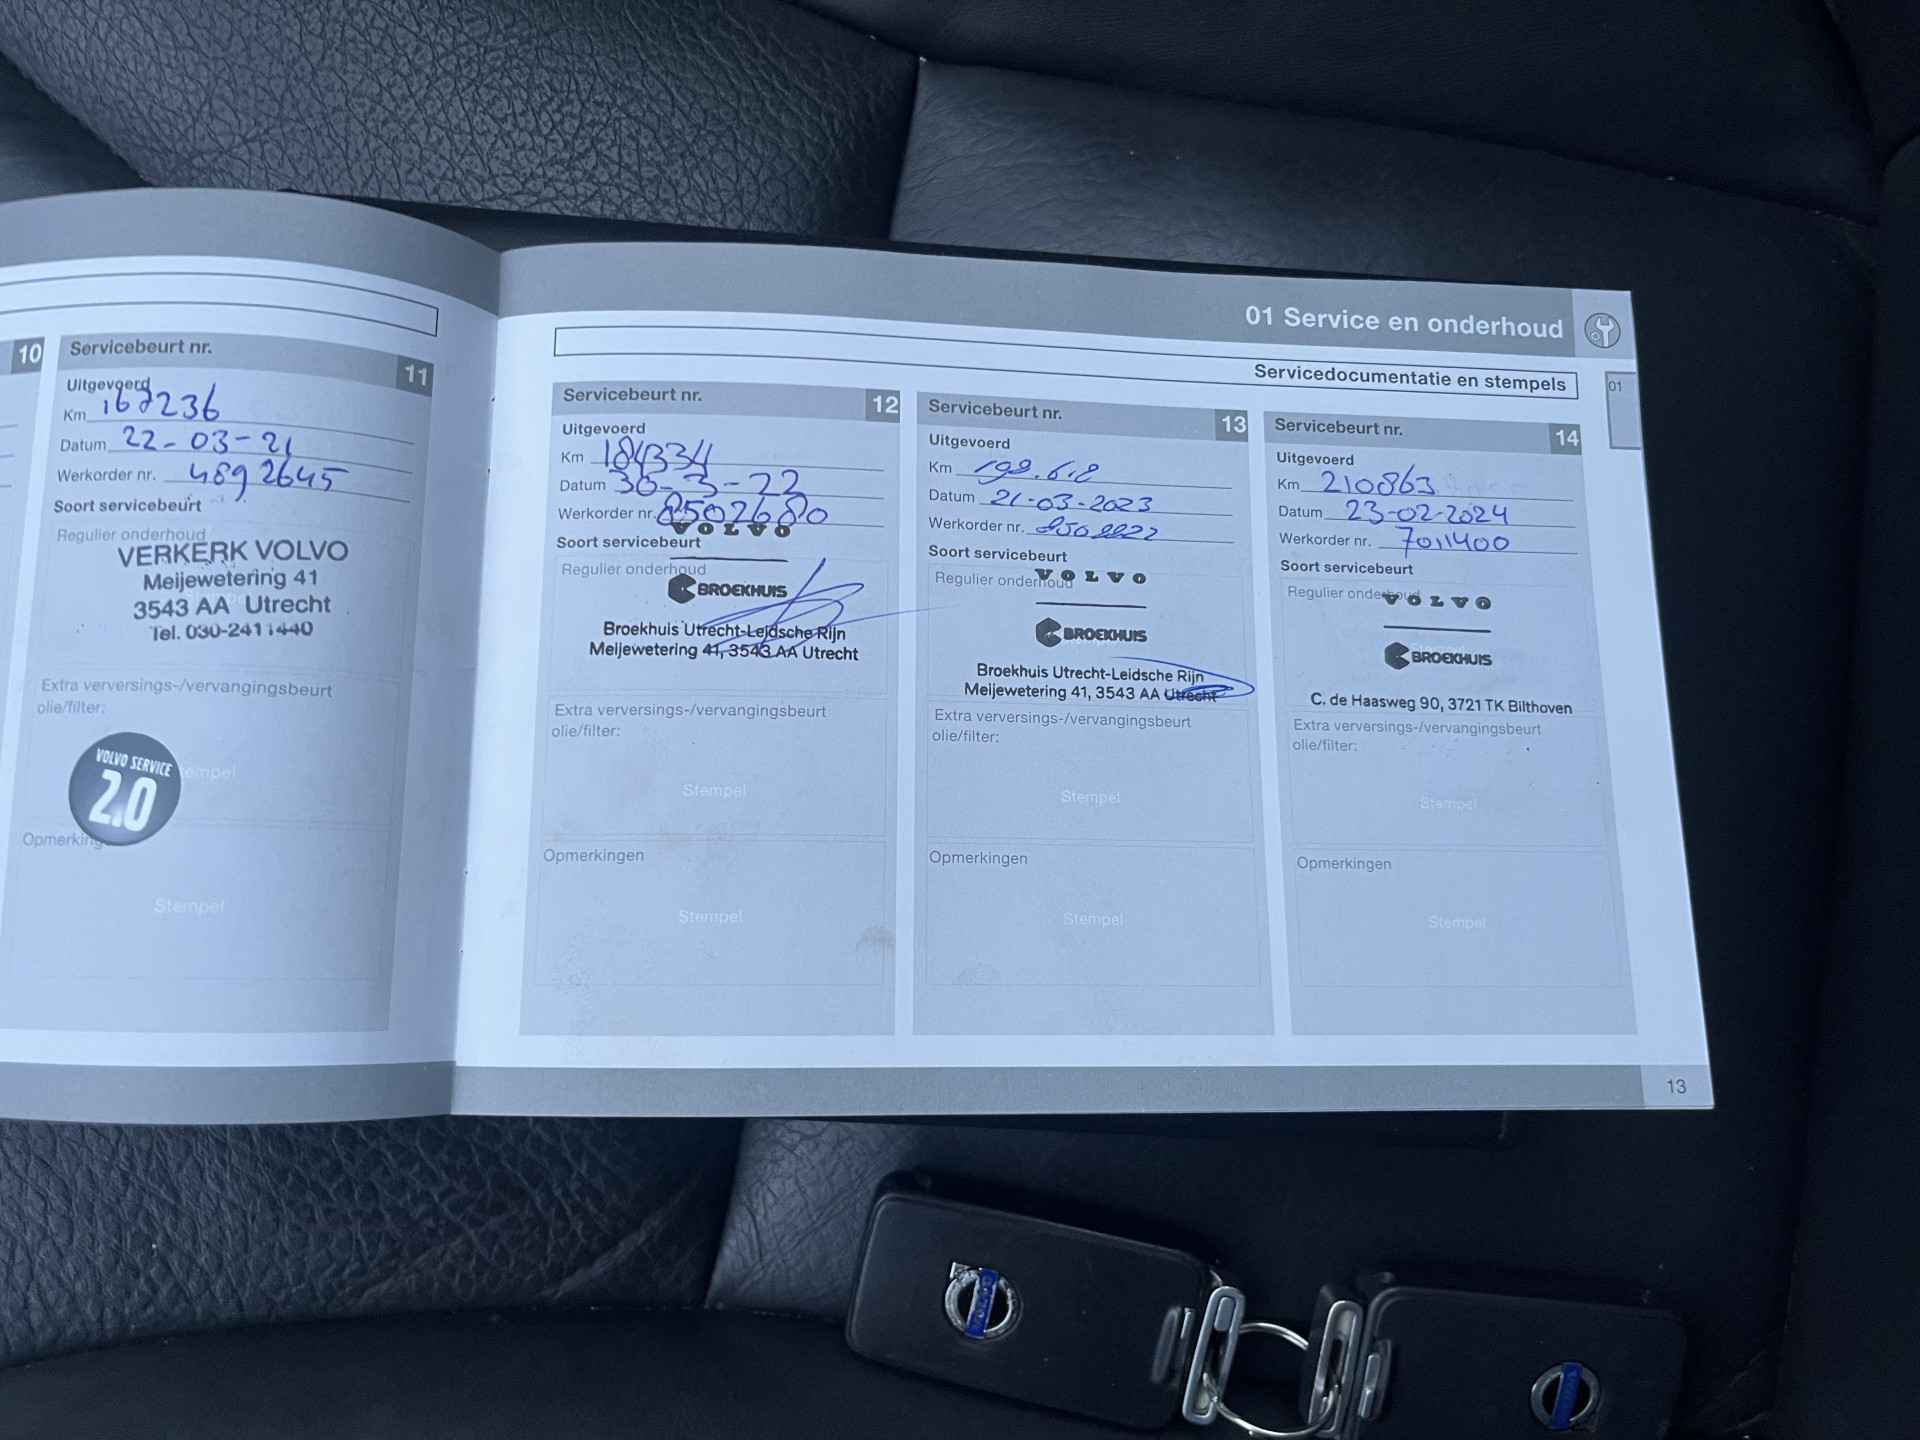 10
Servicebeurt nr. 11
Uitgevoerd
Km 167236
Datum 22-03-21
Werkorder nr. 4892645
Soort servicebeurt
Regulier onderhoud
VERKERK VOLVO
Meijewetering 41
3543 AA Utrecht
Tel. 030-2411440
Extra verversings-/vervangingsbeurt
olie/filter:
VOLVO SERVICE
2.0
Opmerking
Stempel
01 Service en onderhoud
Servicedocumentatie en stempels
01
Servicebeurt nr. 12
Uitgevoerd
Km 184334
Datum 30-3-22
Werkorder nr. 8502680
VOLVO
Soort servicebeurt
Regulier onderhoud
BROEKHUIS
Broekhuis Utrecht-Leidsche Rijn
Meijewetering 41, 3543 AA Utrecht
Extra verversings-/vervangingsbeurt
olie/filter:
Stempel
Opmerkingen
Stempel
Servicebeurt nr. 13
Uitgevoerd
Km
Datum 21-03-2023
Werkorder nr.
Soort servicebeurt
Regulier onderhoud
VOLVO
BROEKHUIS
Broekhuis Utrecht-Leidsche Rijn
Meijewetering 41, 3543 AA Utrecht
Extra verversings-/vervangingsbeurt
olie/filter:
Stempel
Opmerkingen
Stempel
Servicebeurt nr. 14
Uitgevoerd
Km 210863
Datum 23-02-2024
Werkorder nr. 7011400
Soort servicebeurt
Regulier onderhoud
VOLVO
BROEKHUIS
C. de Haasweg 90, 3721 TK Bilthoven
Extra verversings-/vervangingsbeurt
olie/filter:
Stempel
Opmerkingen
Stempel
13
VOLVO
VOLVO